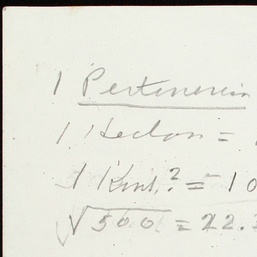 1 Pertinencia
1 Hecton =
1 Kint.² = 10
√500 = 22.3